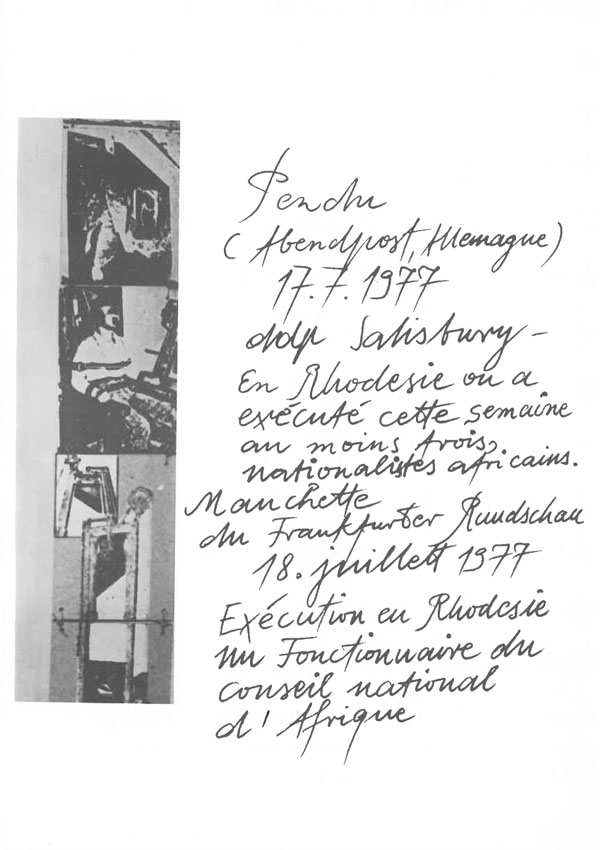 Pendu
(Abendpost, Allemagne)
17.7.1977
ddp Salisbury –
En Rhodesie on a
exécuté cette semaine
au moins trois
nationalistes africains.
Manchette
du Frankfurter Rundschau
18. juillett 1977
Exécution en Rhodesie
Un Fonctionnaire du
conseil national
d'Afrique